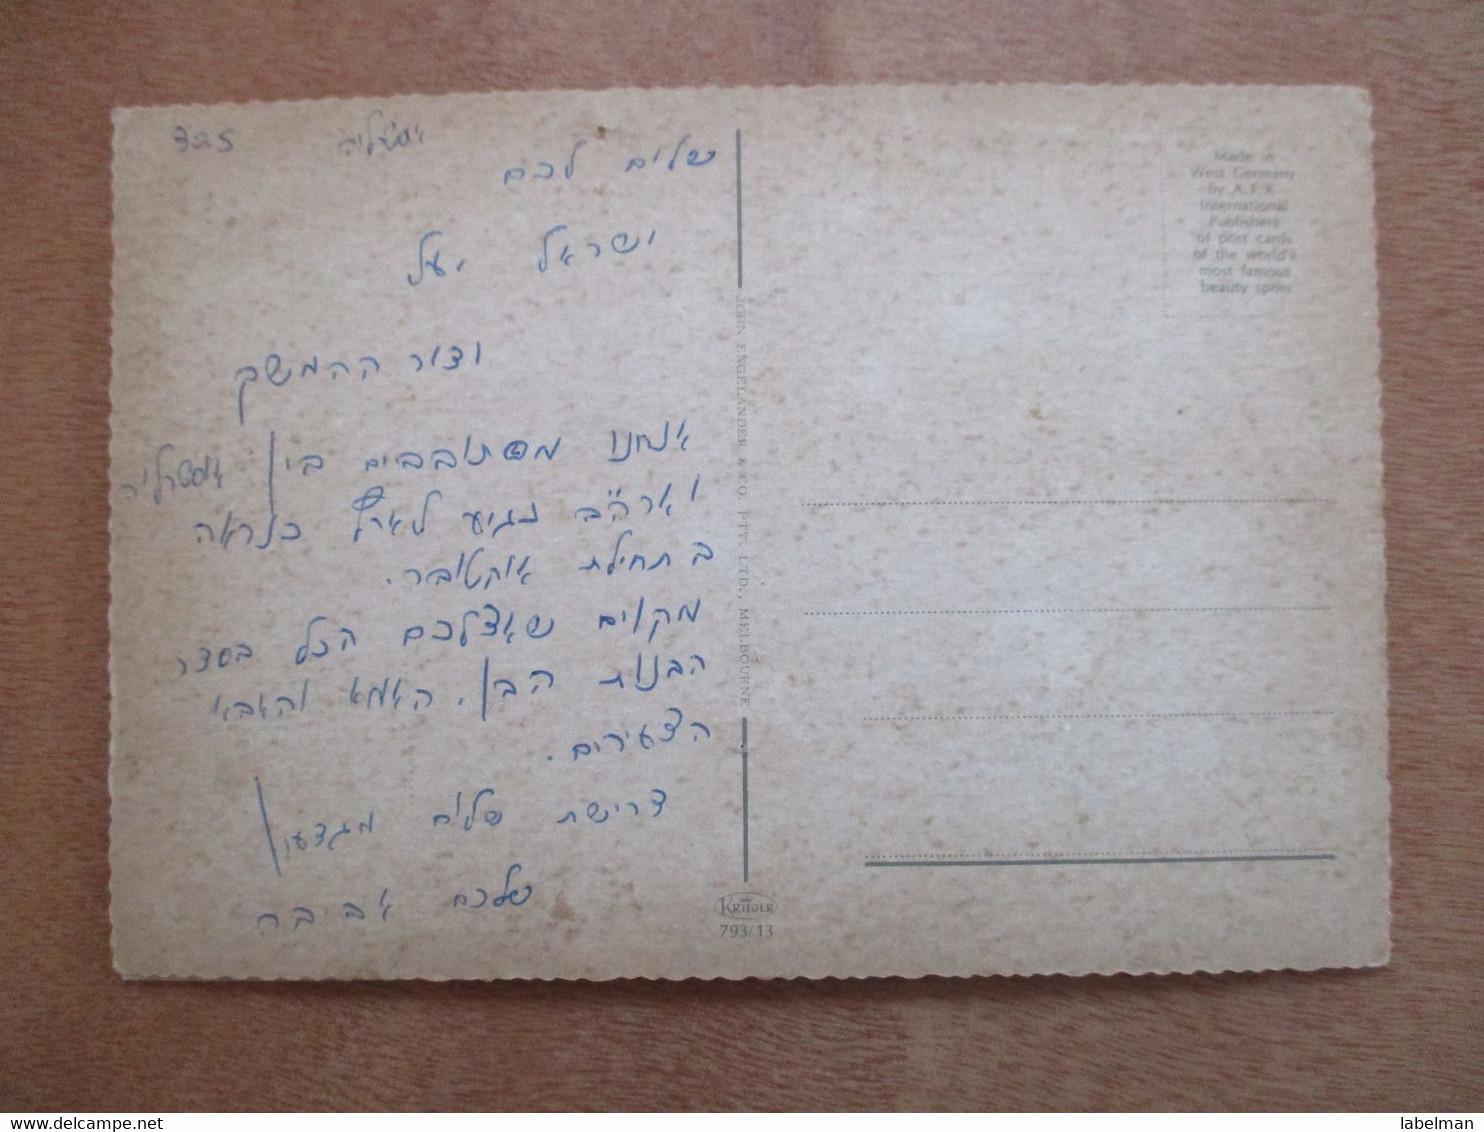 אוסטרליה
שלום לכם
ישראל יעל
וצור ההמשך
אנחנו מסתובבים בין אוסטרליה
וארה"ב נגיע לארץ כנראה
בתחילת אוקטובר.
מקוים שאצלכם הכל בסדר
הבנות הבן, האמא והאבא
הצעירים.
דרישת שלום מגדעון
שלכם אביבה
JOHN ENGELANDER & CO. PTY. LTD., MELBOURNE
KRÜGER
793/13
Made in
West Germany
by A.F.K.
International
Publishers
of post cards
of the world's
most famous
beauty spots
labelman
www.delcampe.net